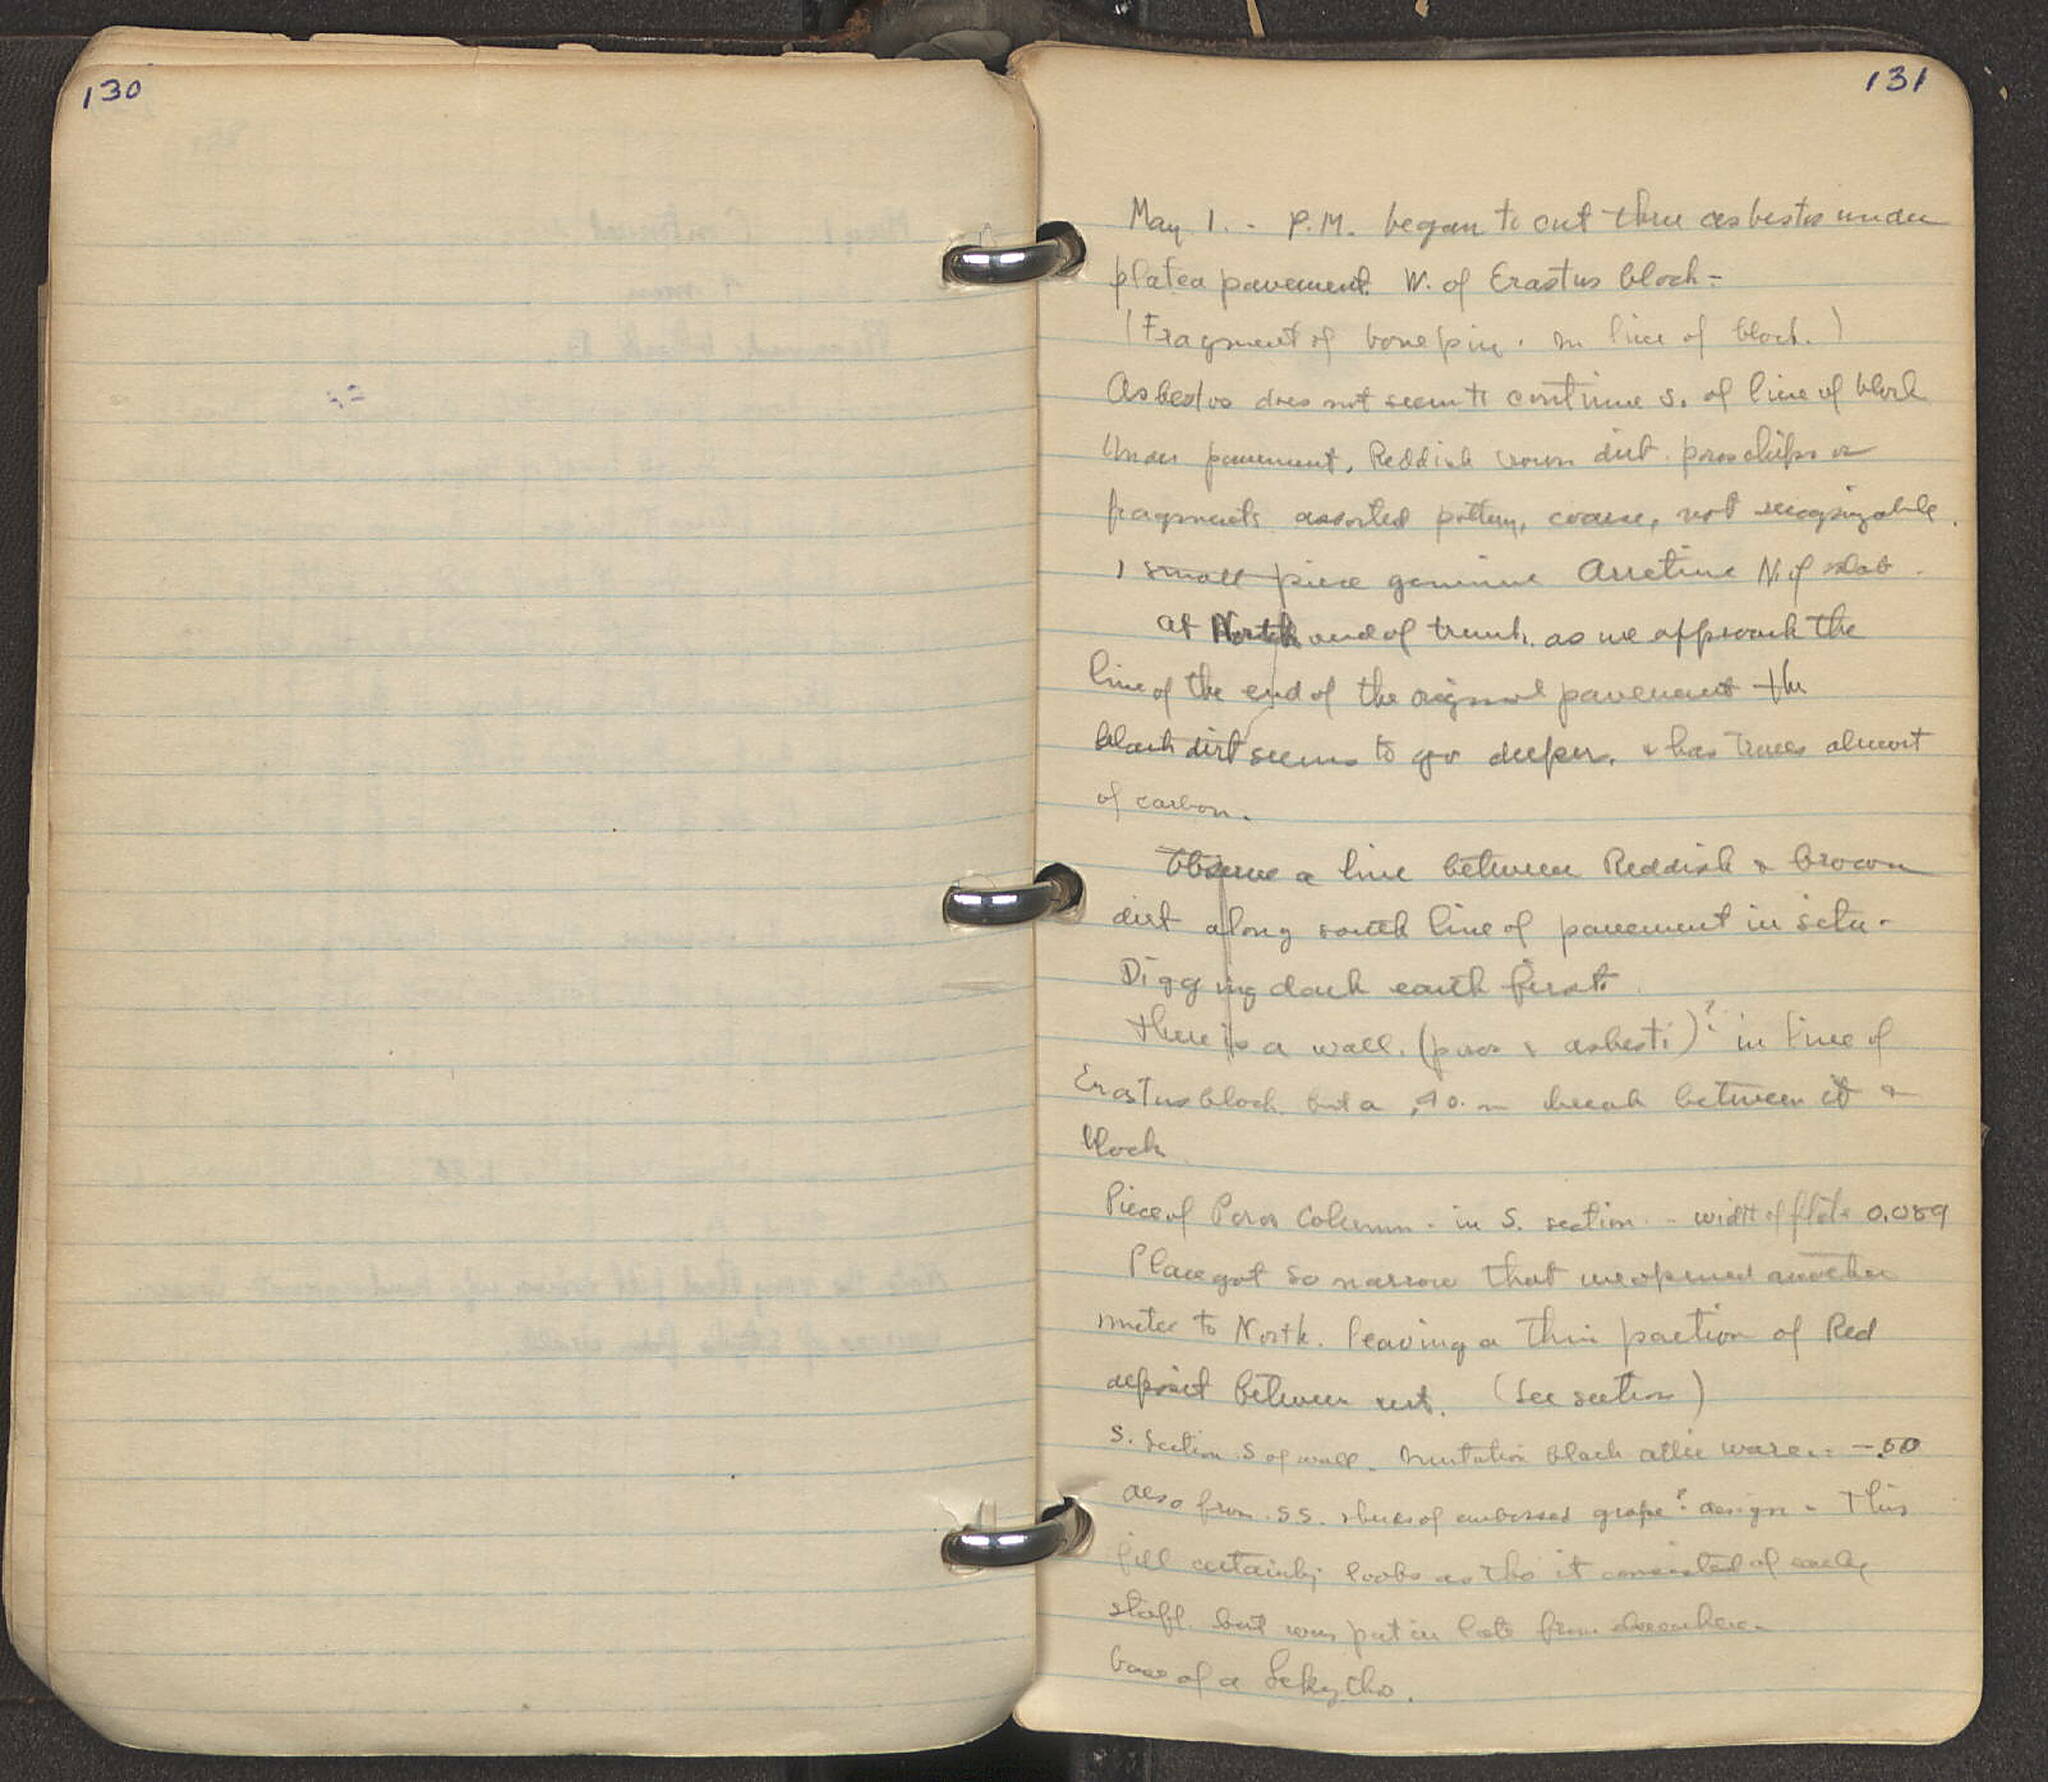 130
131
May 1. - P.M. began to cut thru asbestos under
platea pavement W. of Erastus block -
(Fragment of bone pin. in line of block.)
Asbestos does not seem to continue S. of line of block
Under pavement. Reddish brown dirt. poros chips &
fragments assorted pottery, coarse, not recognizable.
1 small piece genuine Arretine N. of slab -
at North end of trench as we approach the
line of the end of the original pavement the
black dirt seems to go deeper, & has traces almost
of carbon.
Observe a line between Reddish & brown
dirt along south line of pavement in situ -
Digging dark earth first.
there is a wall. (poros & asbesti)? in line of
Erastus block but a .40 m break between it &
block
Piece of Poros Column - in S. section - width of flute 0.089
Place got so narrow that we opened another
meter to North. leaving a thin portion of Red
deposit between cut. (See section)
S. Section S of wall - Imitation black attic ware.. - .50
also from S.S. sherd of embossed grape? design - This
fill certainly looks as tho it consisted of early
stuff. but was put in late from elsewhere -
base of a Lekythos.